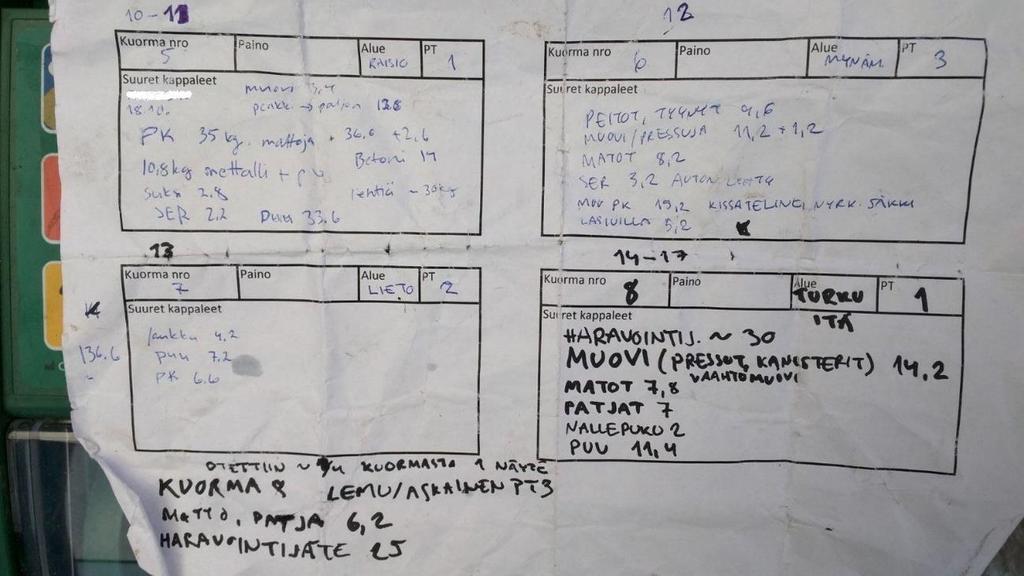 10-11
Kuorma nro 5 Paino Alue RAISIO PT 1
Suuret kappaleet
18.10. muovi 3,4
patjan 12.8
PK 35 kg. mattoja 36.6 + 2.6
Betoni 14
10,8 kg metalli + pu
Suksi 2.8 lehtiä ~30kg
SER 2.2 Puu 33.6
12
Kuorma nro 6 Paino Alue MYNÄM PT 3
Suuret kappaleet
PEITOT, TYYNYT 4,6
MUOVI/PRESSUJA 11,2 + 1,2
MATOT 8,2
SER 3,2 AUTON
MUU PK 19,2 KISSATELINE, NYRK. SÄKKI
LASIVILLA 5,2
13
Kuorma nro 7 Paino Alue LIETO PT 2
Suuret kappaleet
136.6
laukku 4.2
puu 7.2
PK 6.6
14-17
Kuorma nro 8 Paino Alue TURKU ITÄ PT 1
Suuret kappaleet
HARAVOINTIJ. ~ 30
MUOVI (PRESSUT, KANISTERIT) 14,2
VAAHTOMUOVI
MATOT 7,8
PATJAT 7
NALLEPUKU 2
PUU 11,4
OTETTIIN ~ 1/4 KUORMASTA 1 NÄYTE
KUORMA 8 LEMU/ASKAINEN PT3
MATTO, PATJA 6,2
HARAVOINTIJÄTE 25